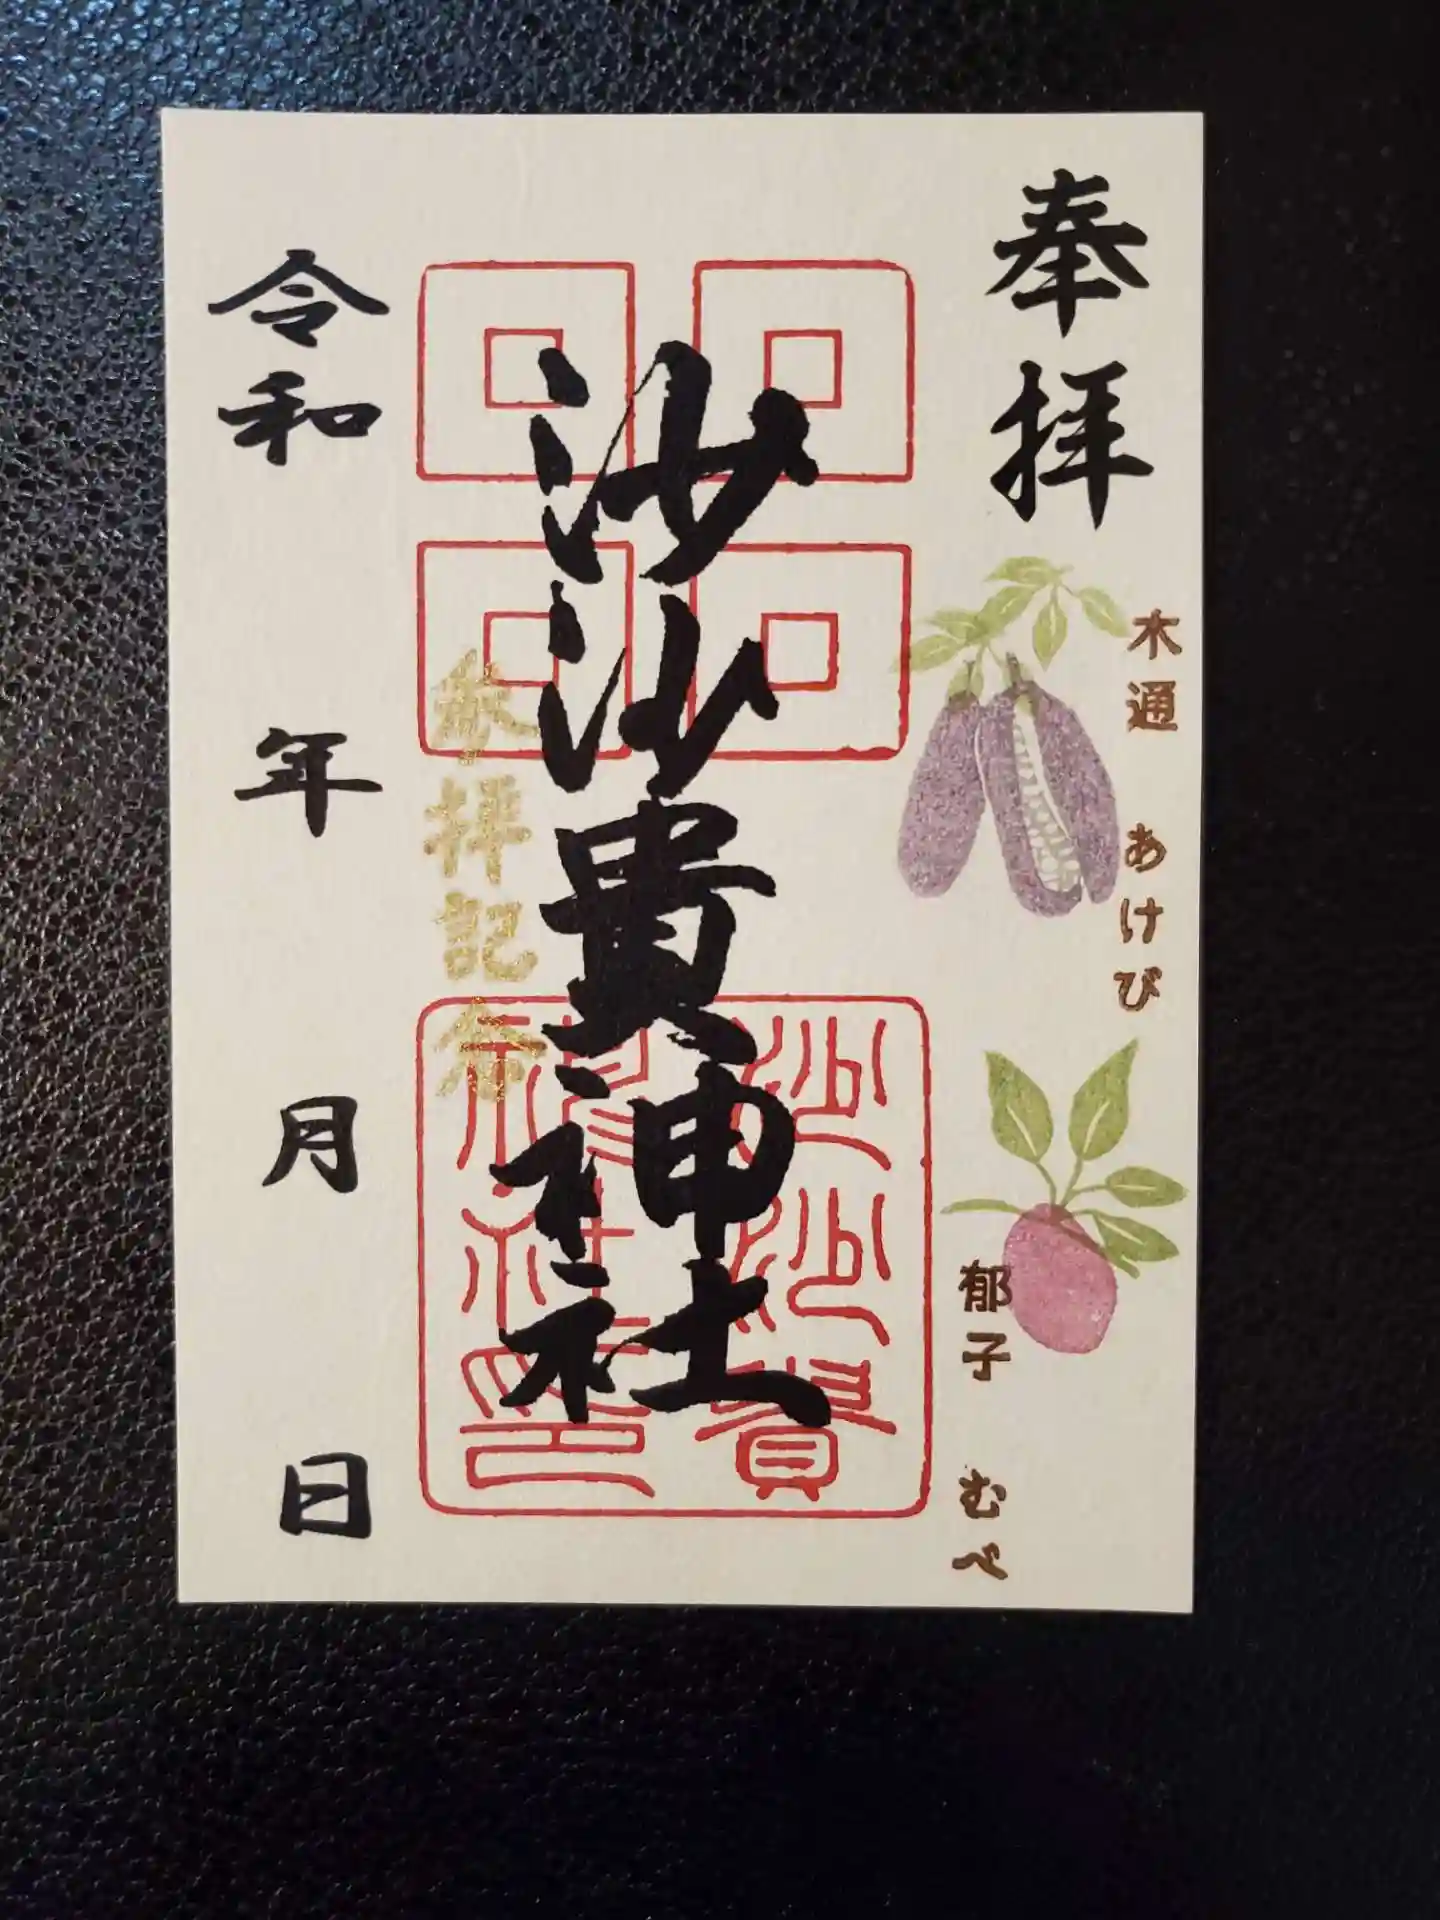 奉拝
木通 あけび
郁子 むべ
沙沙貴神社
沙沙貴
神社印
参拝記念
令和 年 月 日